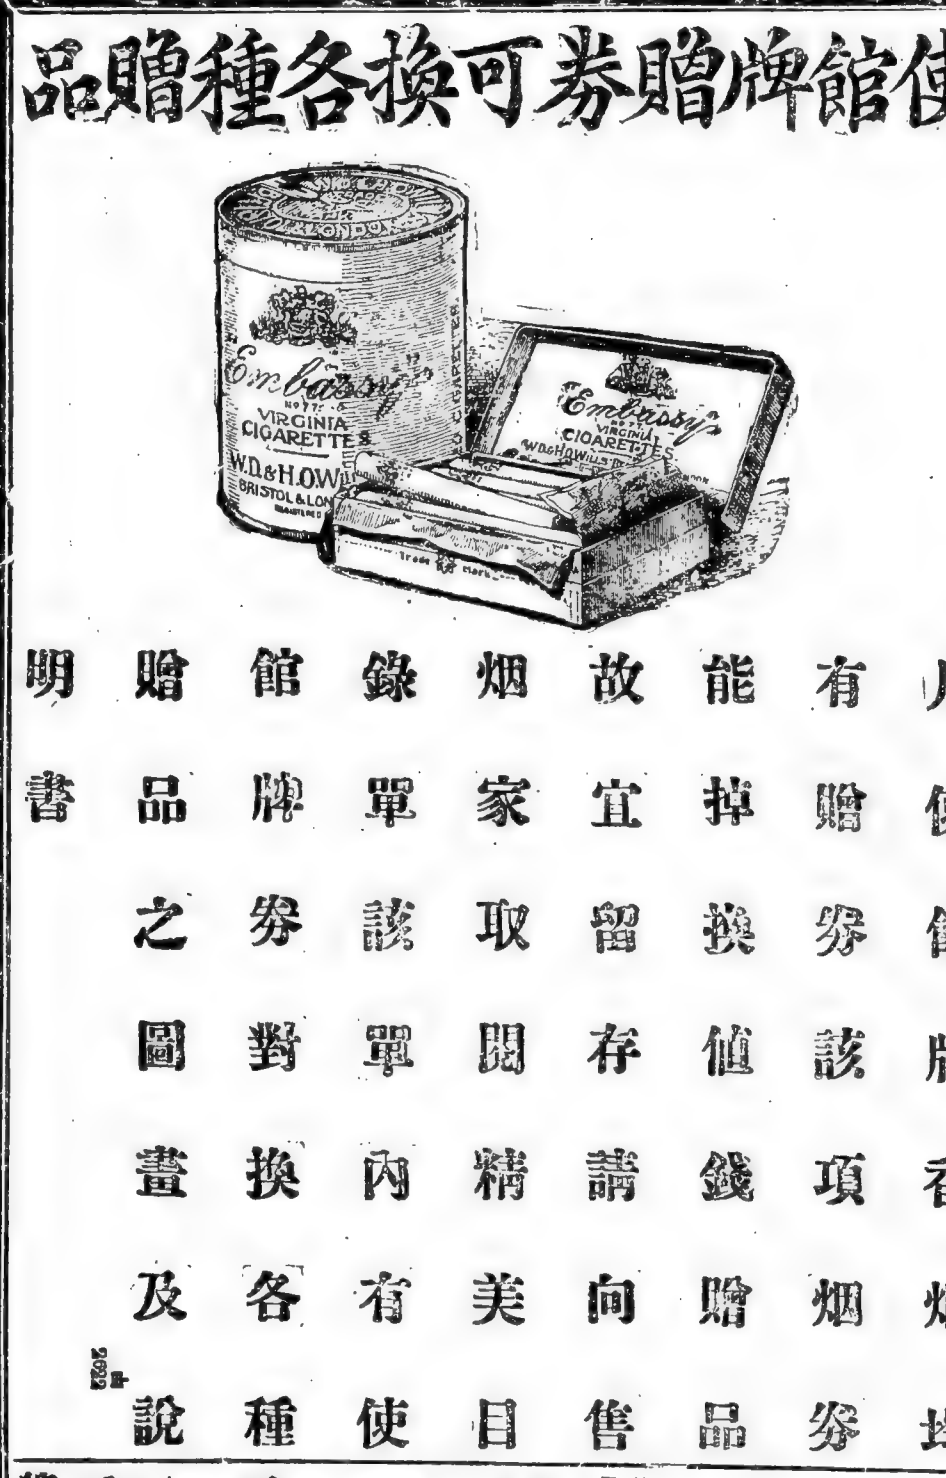 使館牌贈券可換各種贈品
"Embassy"
No 77.
VIRGINIA
CIGARETTES
W.D.& H.O.W
BRISTOL & LON
"Embassy"
No 77.
VIRGINIA
CIGARETTES
W.D.& H.O.WILLS
Trade Mark
有贈券該項烟券
能掉換值錢贈品
故宜留存請向售
烟家取閱精美目
錄單該單內有使
館牌券對換各種
贈品之圖畫及說
明書
2622